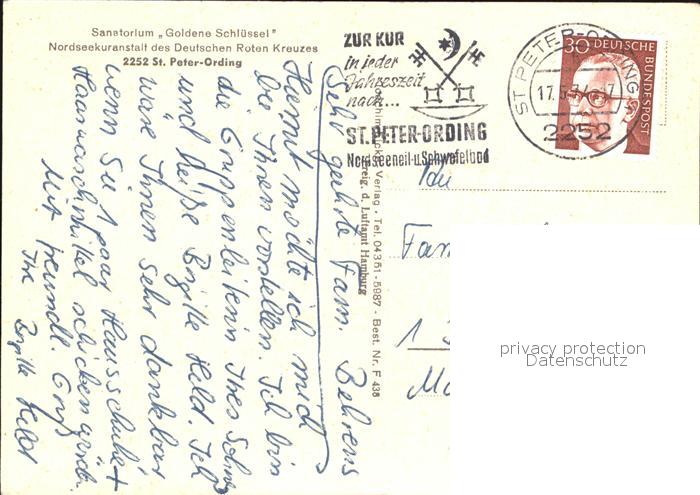 Sanatorium „Goldene Schlüssel"
Nordseekuranstalt des Deutschen Roten Kreuzes
2252 St. Peter-Ording
ZUR KUR
in jeder
Jahreszeit
nach...
ST. PETER-ORDING
Nordseeheil-u. Schwefelbad
ST. PETER-ORDING
17.5.7
2252
30 DEUTSCHE BUNDESPOST
Verlag . Tel. 04351-5987 - Best. Nr. F 438
Freig. d. Luftamt Hamburg
Sehr geehrte Fam. Behrens
Hiermit möchte ich mich
bei Ihnen vorstellen. Ich bin
die Gruppenleiterin Ihres Sohnes
und heiße Brigitte Held. Ich
wäre Ihnen sehr dankbar
wenn Sie 1 paar Hausschuhe +
Haarwaschmittel schicken würden.
Mit freundl. Gruß
Ihre Brigitte Held
An
Fam
1
privacy protection
Datenschutz